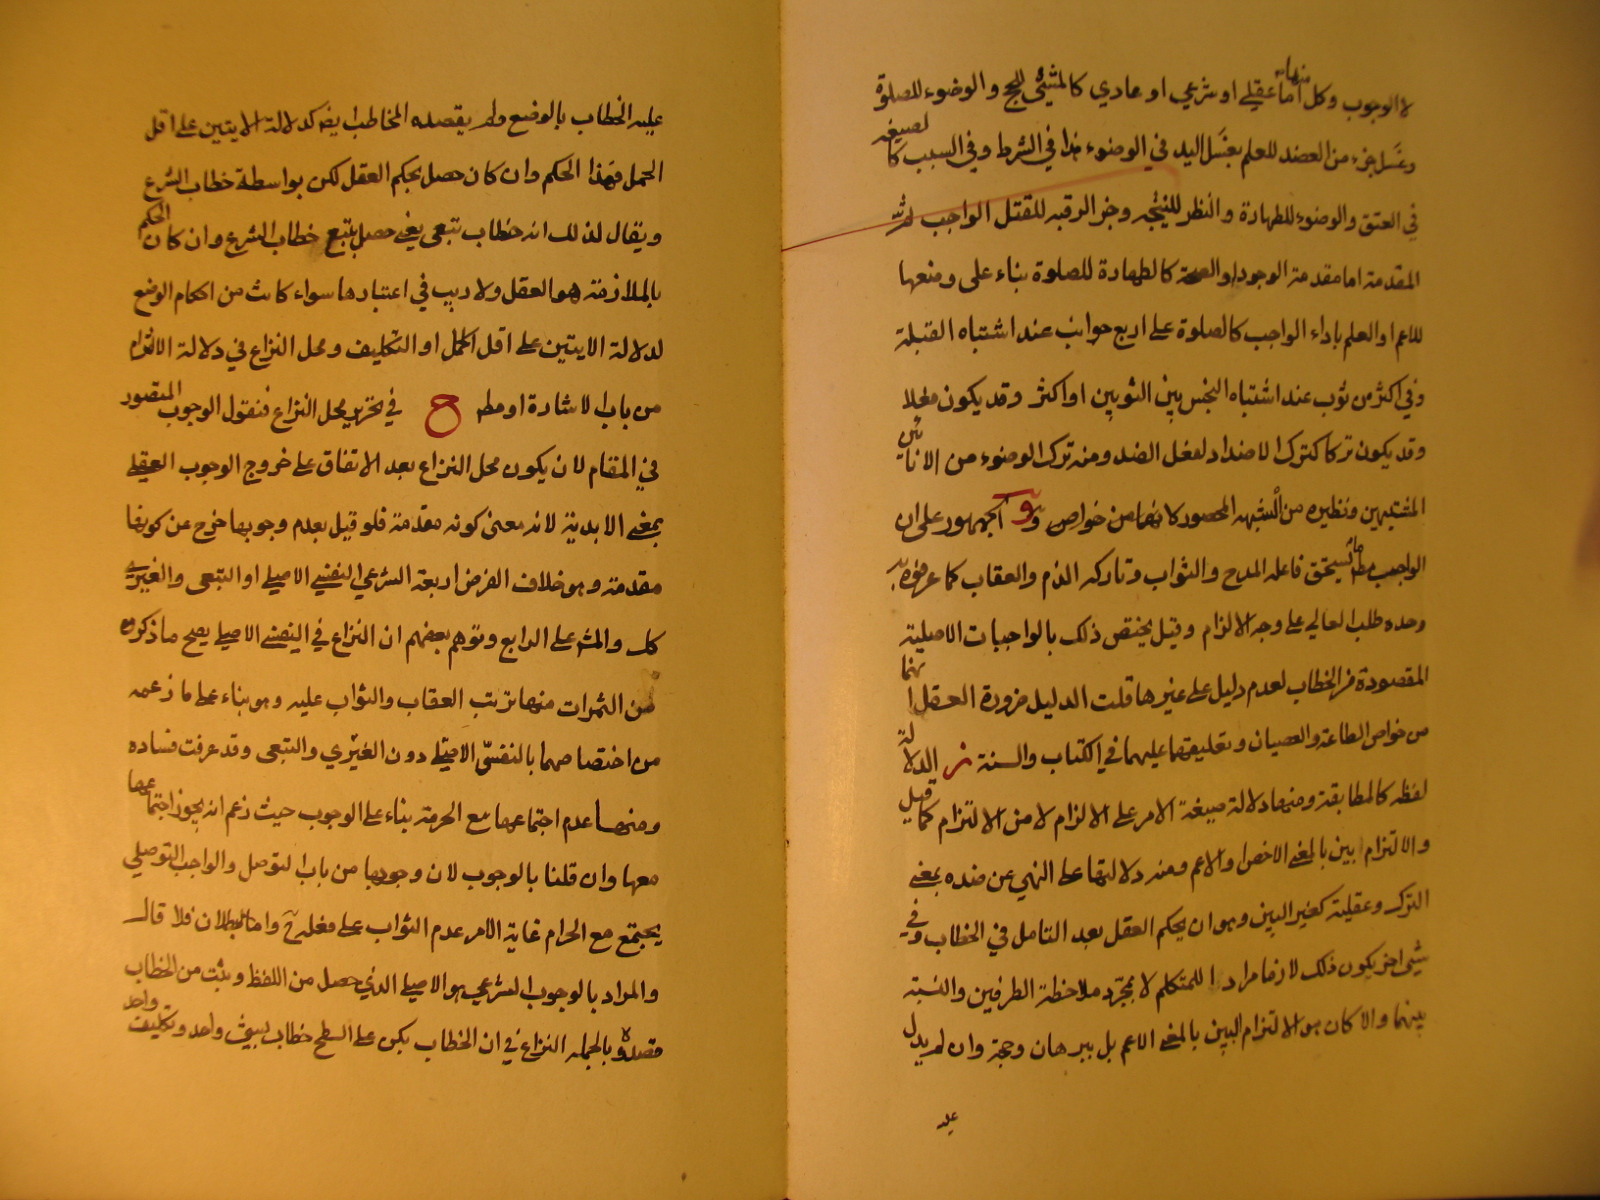 لا الوجوب وكل منها اما عقلي او شرعي او عادي كالمشي للحج والوضوء للصلوة
وغسل جزء من العضد للعلم بغسل اليد في الوضوء هذا في الشرط وفي السبب كالصيغة
في العتق والوضوء للطهارة والنظر للنتيجه وحز الرقبه للقتل الواجب ثم
المقدمة اما مقدمة الوجود او الصحة كالطهارة للصلوة بناء على وضعها
للاعم او العلم باداء الواجب كالصلوة على اربع جوانب عند اشتباه القبلة
وفي اكثر من ثوب عند اشتباه النجس بين الثوبين او اكثر وقد يكون فعلا
وقد يكون تركا كترك الاضداد لفعل الضد ومنه ترك الوضوء من الانائين
المشتبهين ونظيره من الشبهه المحصور من خواص و الجمهور على ان
الواجب مطلقا ما يستحق فاعله المدح والثواب وتاركه الذم والعقاب كما عرفوه به
وحده طلب العالي على وجه الالزام وقيل يختص ذلك بالواجبات الاصلية
المقصودة من الخطاب لعدم دليل على غيرها قلت الدليل ضرورة العقل انهما
من خواص الطاعة والعصيان وتعليقهما عليهما في الكتاب والسنة ز الدلالة
لفظه كالمطابقة ومنها دلالة صيغة الامر على الالزام لا من الالتزام كما قيل
والالتزام البين بالمعنى الاخص او الاعم ومنه دلالتها على النهي عن ضده بمعنى
الترك وعقلية كغير البين وهو ان يحكم العقل بعد التامل في الخطاب وفي
شيء اخر بكون ذلك لازما مرادا للمتكلم لا بمجرد ملاحظة الطرفين والنسبة
بينهما والا كان هو الالتزام البين بالمعنى الاعم بل ببرهان وحجة وان لم يدل
عليه
عليه الخطاب بالوضع ولم يقصده المخاطب ايضا كدلالة الايتين على اقل
الحمل فهذا الحكم وان كان حصل بحكم العقل لكن بواسطة خطاب الشرع
ويقال لذلك انه خطاب تبعى يعنى حصل بتبع خطاب الشرع وان كان الحكم
بالملازمة هو العقل ولا ريب في اعتبارها سواء كانت من احكام الوضع
لدلالة الايتين على اقل الحمل او التكليف ومحل النزاع في دلالة الالتزام
من باب الاشارة او مط ح في تحرير محل النزاع فنقول الوجوب المتصور
في المقام لان يكون محل النزاع بعد الاتفاق على خروج الوجوب العقلي
بمعنى الابدية لانه معنى كونه مقدمة فلو قيل بعدم وجوبها خرج عن كونها
مقدمة وهو خلاف الفرض اربعة الشرعي النفسي الاصيلي او التبعى والغيري
كك والمشهر على الرابع وتوهم بعضهم ان النزاع في النفسي الاصيلي يصح ما ذكروه
من الثمرات منها ترتب العقاب والثواب عليه وهو بناء على ما زعمه
من اختصاصهما بالنفسي الاصيلي دون الغيري والتبعى وقد عرفت فساده
ومنها عدم اجتماعها مع الحرمة بناء على الوجوب حيث زعم انه يجوز اجتماعها
معها وان قلنا بالوجوب لان وجوبها من باب التوصل والواجب التوصلي
يجتمع مع الحرام غاية الامر عدم الثواب على فعله ح واما البطلان فلا قال
والمراد بالوجوب الشرعي هو الاصيلي الذي حصل من اللفظ ويثبت من الخطاب
قصدا وبالجملة النزاع في ان الخطاب بكن على السطح خطاب بشيء واحد وتكليف واحد